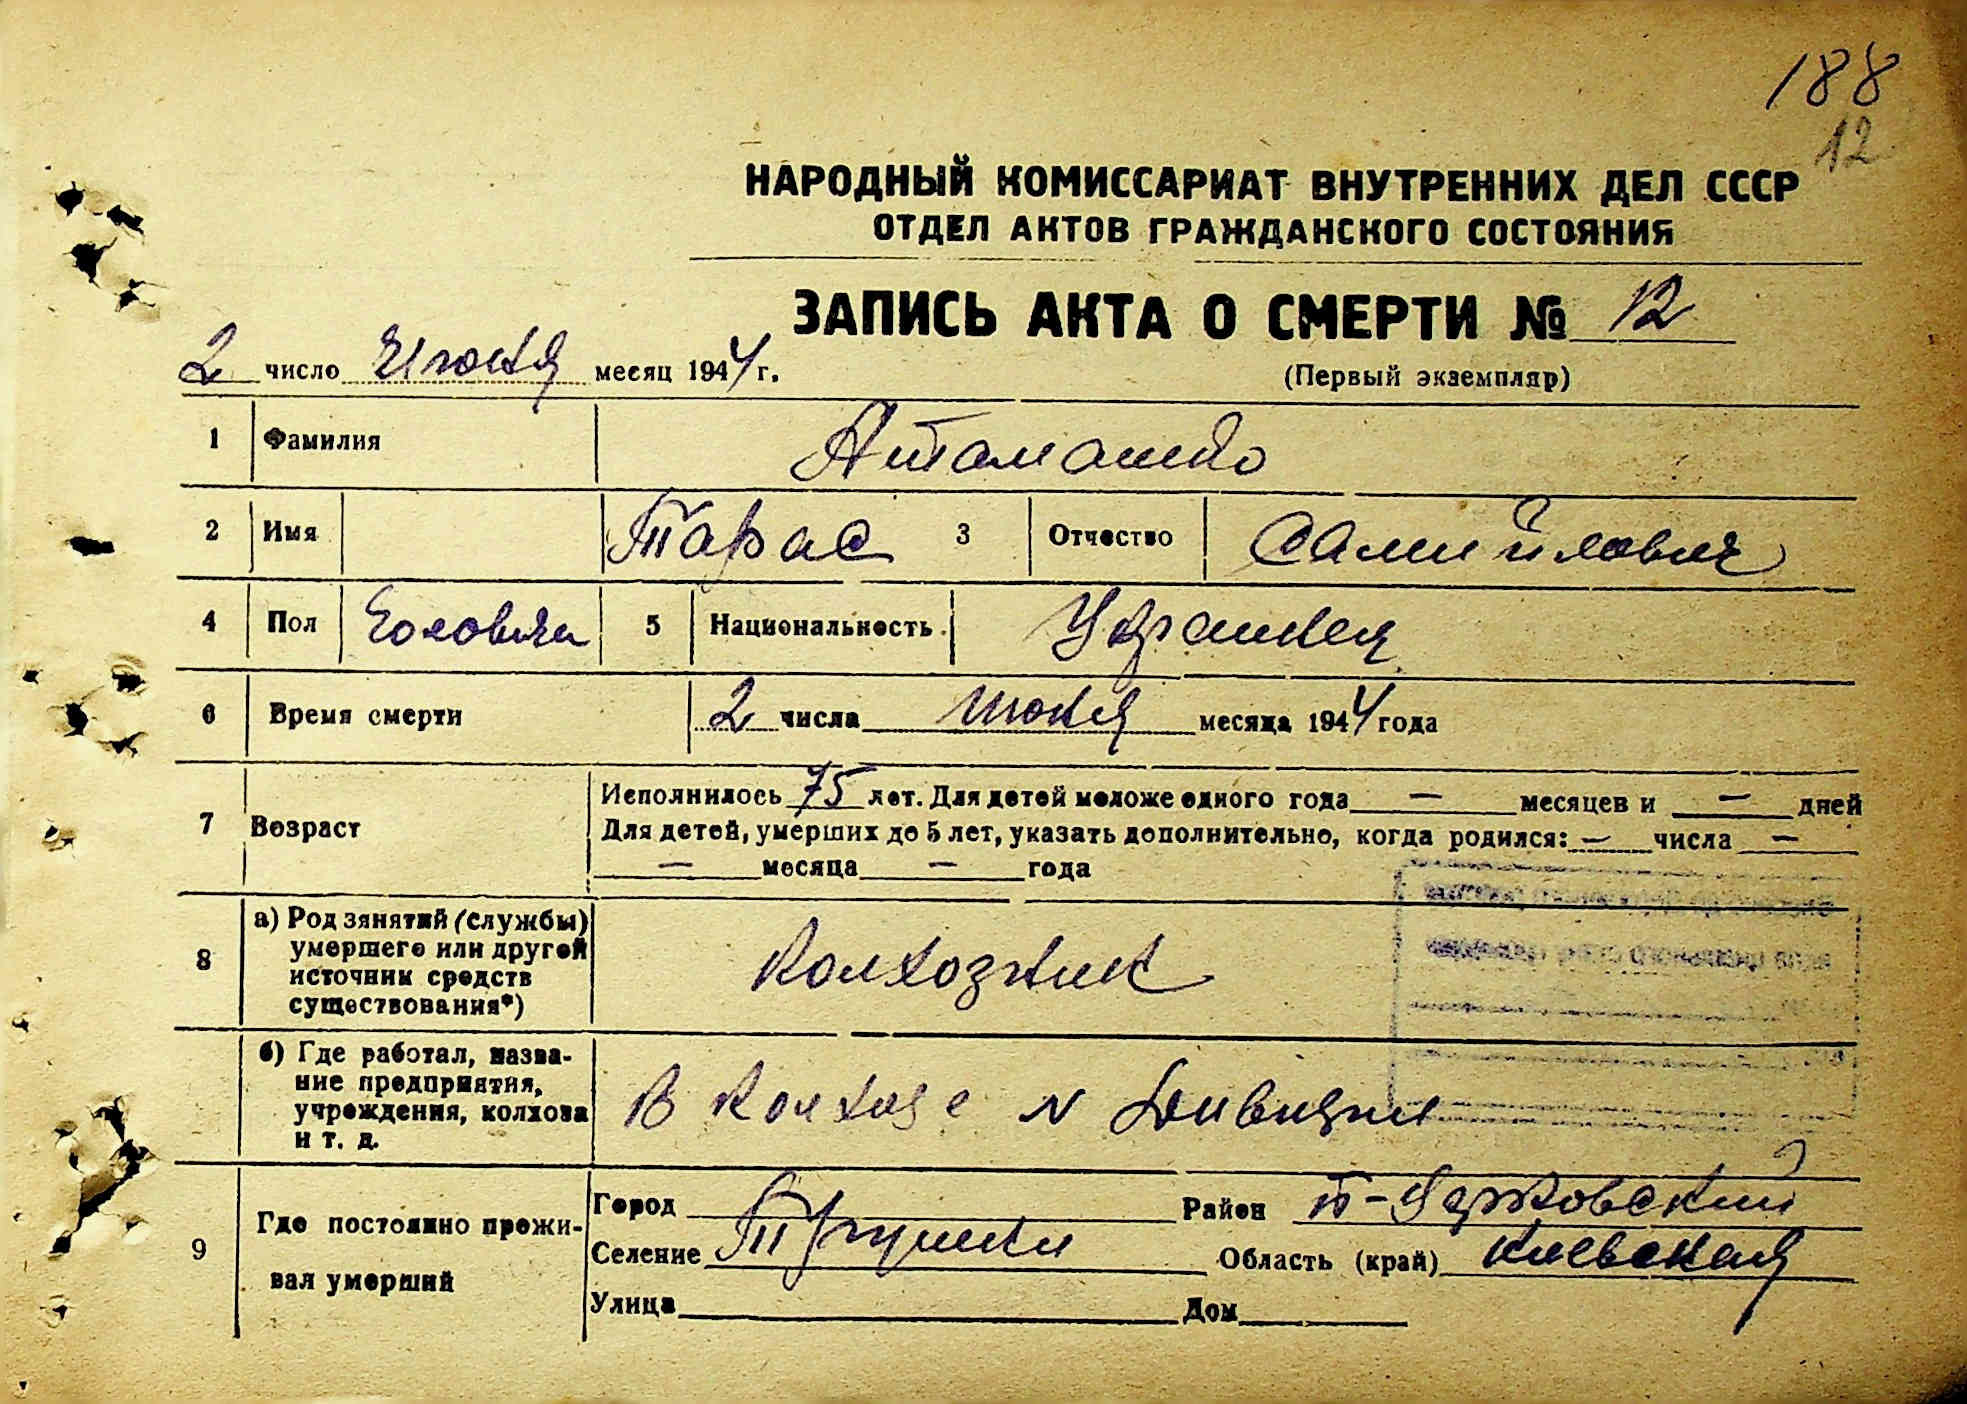 188
12
НАРОДНЫЙ КОМИССАРИАТ ВНУТРЕННИХ ДЕЛ СССР
ОТДЕЛ АКТОВ ГРАЖДАНСКОГО СОСТОЯНИЯ
ЗАПИСЬ АКТА О СМЕРТИ № 12
(Первый экземпляр)
2 число Июня месяц 1944 г.
1 Фамилия Атаманенко
2 Имя Тарас 3 Отчество Самийлович
4 Пол Чоловіча 5 Национальность Украинец
6 Время смерти 2 числа июня месяца 1944 года
7 Возраст Исполнилось 75 лет. Для детей моложе одного года — месяцев и — дней
Для детей, умерших до 5 лет, указать дополнительно, когда родился: — числа —
— месяца — года
8 а) Род занятий (службы) умершего или другой источник средств существования*) Колхозник
б) Где работал, название предприятия, учреждения, колхоза и т. д. В Колхозе
9 Где постоянно проживал умерший
Город Район Б-Церковский
Селение Трушки Область (край) Киевская
Улица Дом